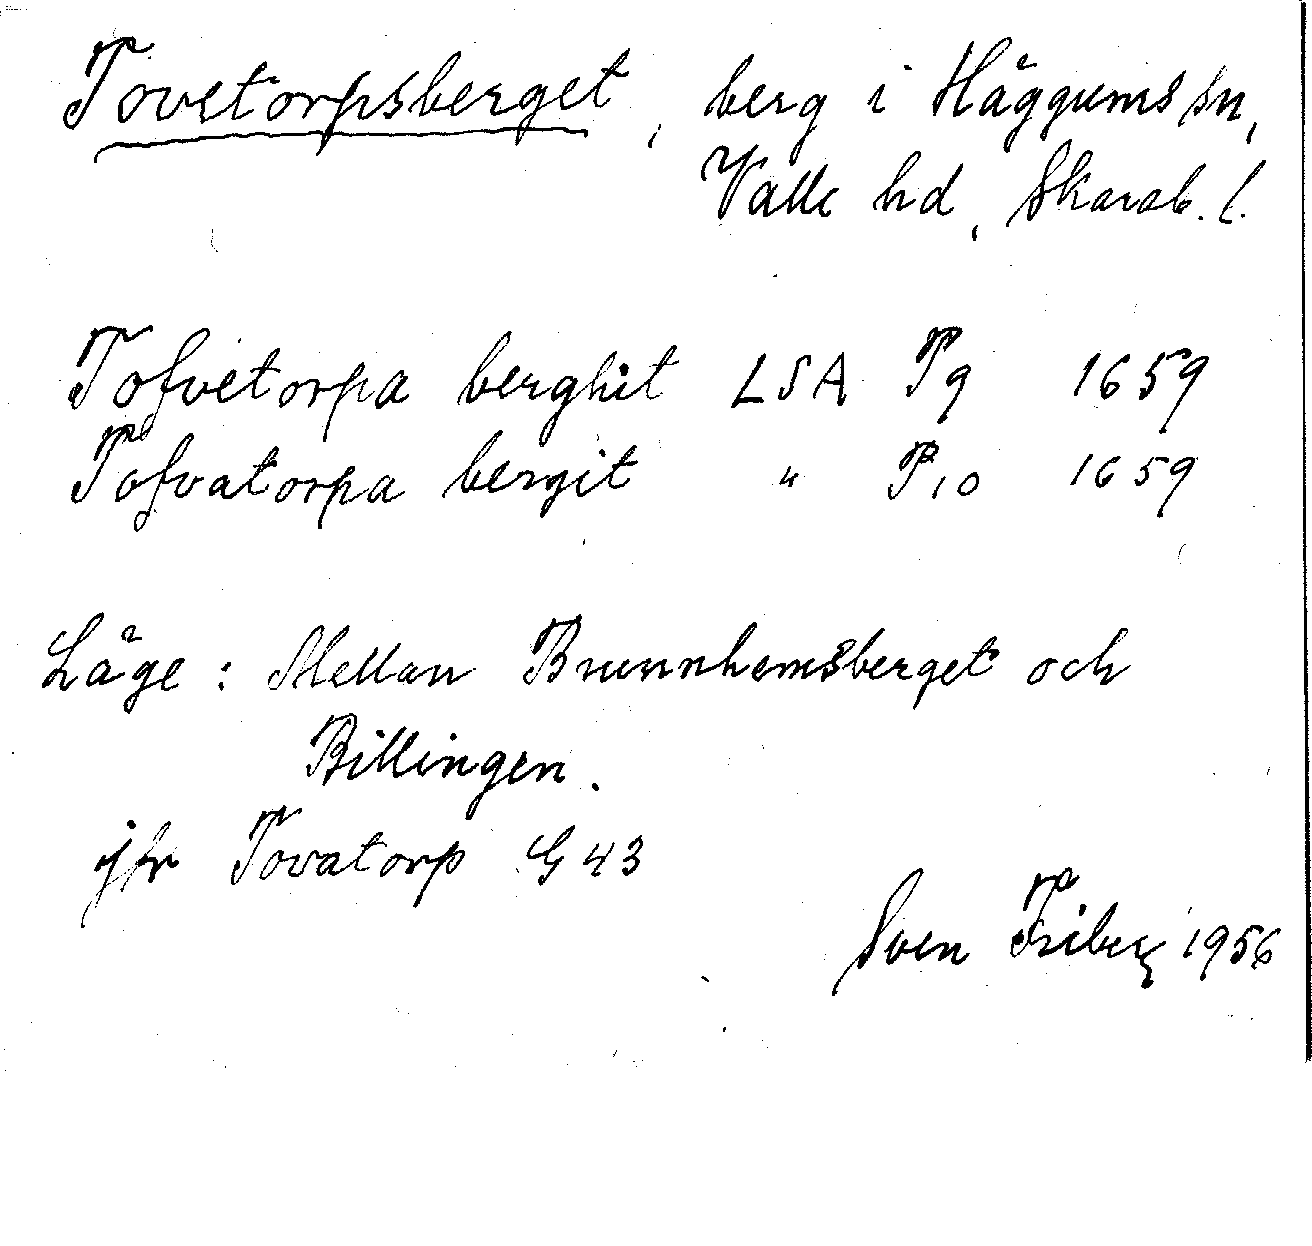 Tovetorpsberget, berg i Häggums sn,
Valle hd, Skarab. l.
Tofvetorpa berghit LSA P9 1659
Tofvatorpa bergit " P10 1659
Läge: Mellan Brunnhemsberget och
Billingen.
jfr Tovatorp G43
Sven Friberg 1956